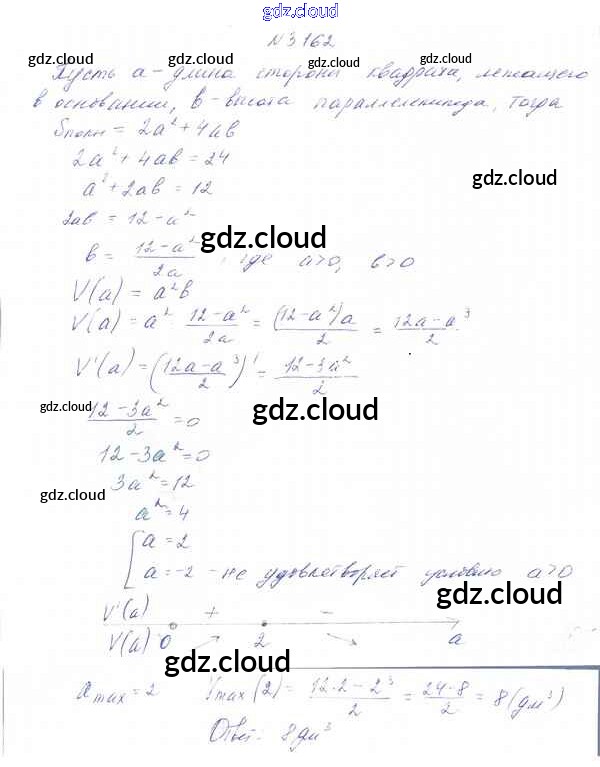 gdz.cloud
№3162
gdz.cloud gdz.cloud
Пусть a - длина стороны квадрата, лежащего
в основании, b - высота параллелепипеда, тогда
Sполн = 2a² + 4ab
2a² + 4ab = 24
a² + 2ab = 12
gdz.cloud
2ab = 12 - a²
b = (12 - a²)/2a, где a>0, b>0
gdz.cloud
V(a) = a²b
V(a) = a² · (12 - a²)/2a = (12 - a²)a/2 = (12a - a³)/2
V'(a) = ((12a - a³)/2)' = (12 - 3a²)/2
gdz.cloud gdz.cloud
(12 - 3a²)/2 = 0
12 - 3a² = 0
3a² = 12
gdz.cloud gdz.cloud
a² = 4
[a = 2
a = -2 - не удовлетворяет условию a>0
gdz.cloud
V'(a) + -
V(a) 0 2 a
gdz.cloud
a max = 2 Vmax(2) = (12·2 - 2³)/2 = (24 - 8)/2 = 8 (дм³)
Ответ: 8 дм³